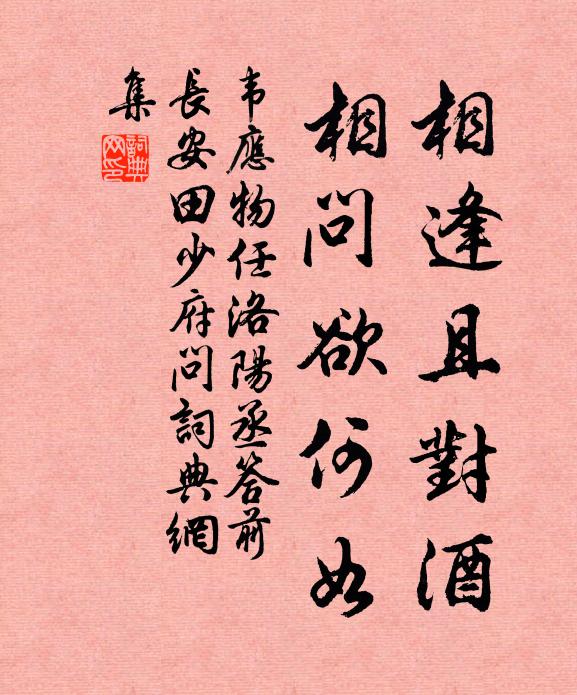 相逢且對酒
相問欲何如
韦應物任洛陽丞答前
長安田少府問詞典網
集
詞典
网印